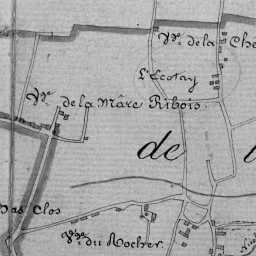 Vge. de la Ch
L'Ecotay
Vge. de la Mare Ribois
de
Bas Clos
Vge. du Rocher